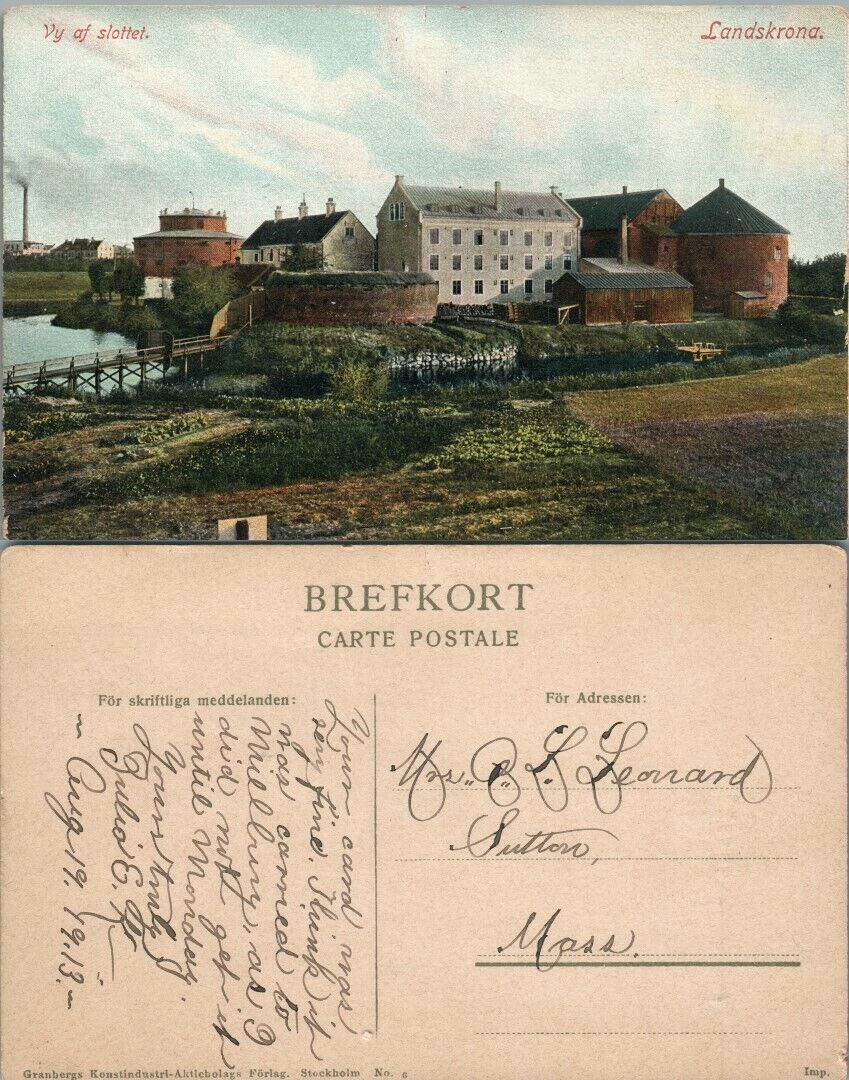 Vy af slottet.
Landskrona.
BREFKORT
CARTE POSTALE
För skriftliga meddelanden:
För Adressen:
Your card was
very fine. Think it
was carried to
Millbury, as I
did not get it
until Monday.
Yours truly
Julia E.
Aug 19. 1913.
Mrs. C. L. Leonard
Sutton,
Mass.
Granbergs Konstindustri-Aktiebolags Förlag. Stockholm No. 6
Imp.